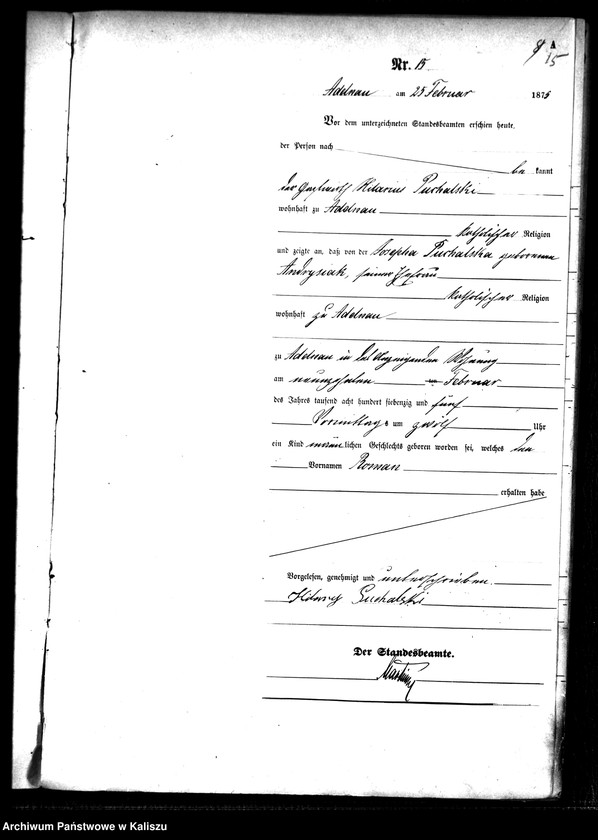 A
15
Nr. 15
Adelnau am 25 Februar 1875
Vor dem unterzeichneten Standesbeamten erschien heute,
der Person nach
be kannt
der Hilarius Puchalski
wohnhaft zu Adelnau
katholischer Religion
und zeigte an, daß von der Josepha Puchalska geborenen
Andrysiak, seiner Ehefrau
katholischer Religion
wohnhaft zu Adelnau
zu Adelnau in des Anzeigenden Wohnung
am neunzehnten Februar
des Jahres tausend acht hundert siebenzig und fünf
Vormittags um zwölf Uhr
ein Kind männlichen Geschlechts geboren worden sei, welches den
Vornamen Roman
erhalten habe
Vorgelesen, genehmigt und unterschrieben
Hilary Puchalski
Der Standesbeamte.
Archiwum Państwowe w Kaliszu